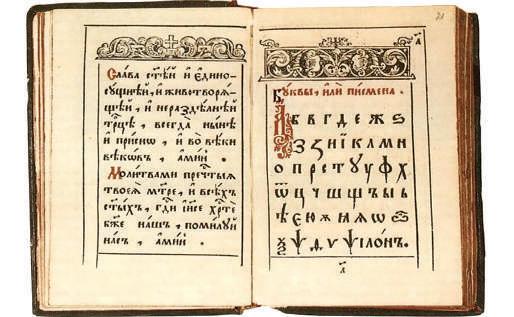 Сла́ва ст҃ѣ́й и҆ є҆дино-
сꙋ́щнѣй, и҆ животворѧ́-
щей, и҆ нераздѣ́лнѣй
трⷪ҇цѣ, всегда̀ ны́нѣ
и҆ при́снѡ, и҆ во вѣ́ки
вѣкѡ́въ, а҆ми́нь.
Моли́твами пречⷭ҇тыѧ
твоеѧ̀ мт҃ре, и҆ всѣ́хъ
ст҃ы́хъ, гдⷭ҇и і҆и҃се хрⷭ҇те
бж҃е на́шъ, поми́лꙋй
на́съ, а҆ми́нь.
21
Бꙋ́квы, и҆лѝ пи́смена.
А б в г д е ж ѕ
з ꙁ и ї к л м н
о п р с т у ꙋ ф х
ѿ ц ч ш щ ъ ы ь
ѣ є ю ѧ ѡ
ѯ ѱ ѵ ѱїло́нъ.